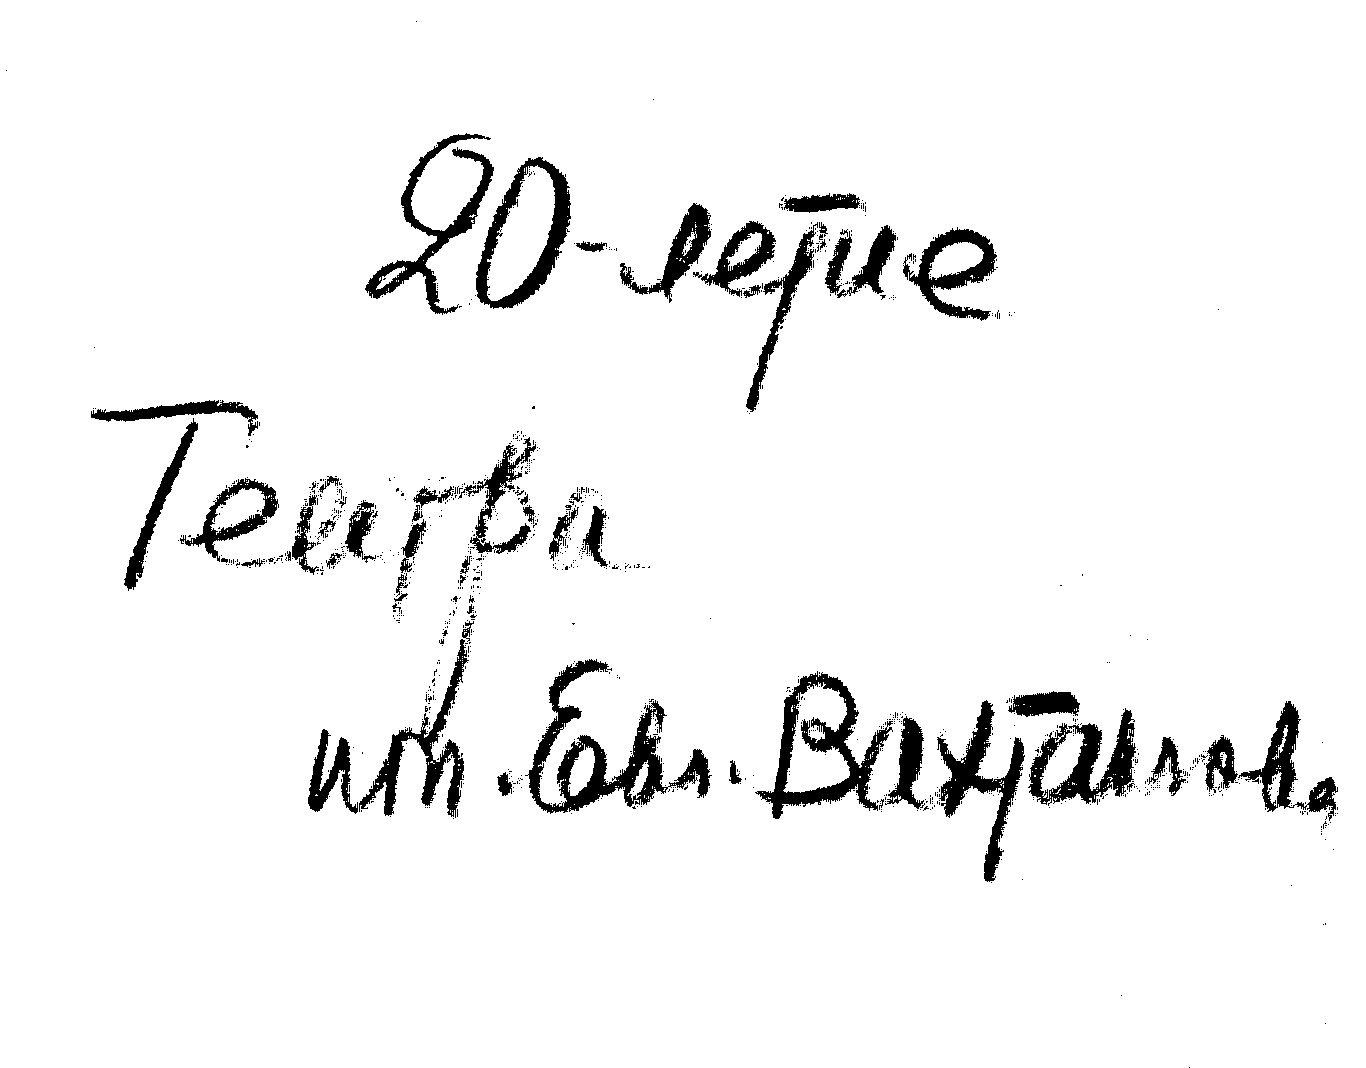 20-летие
Театра
им. Евг. Вахтангова